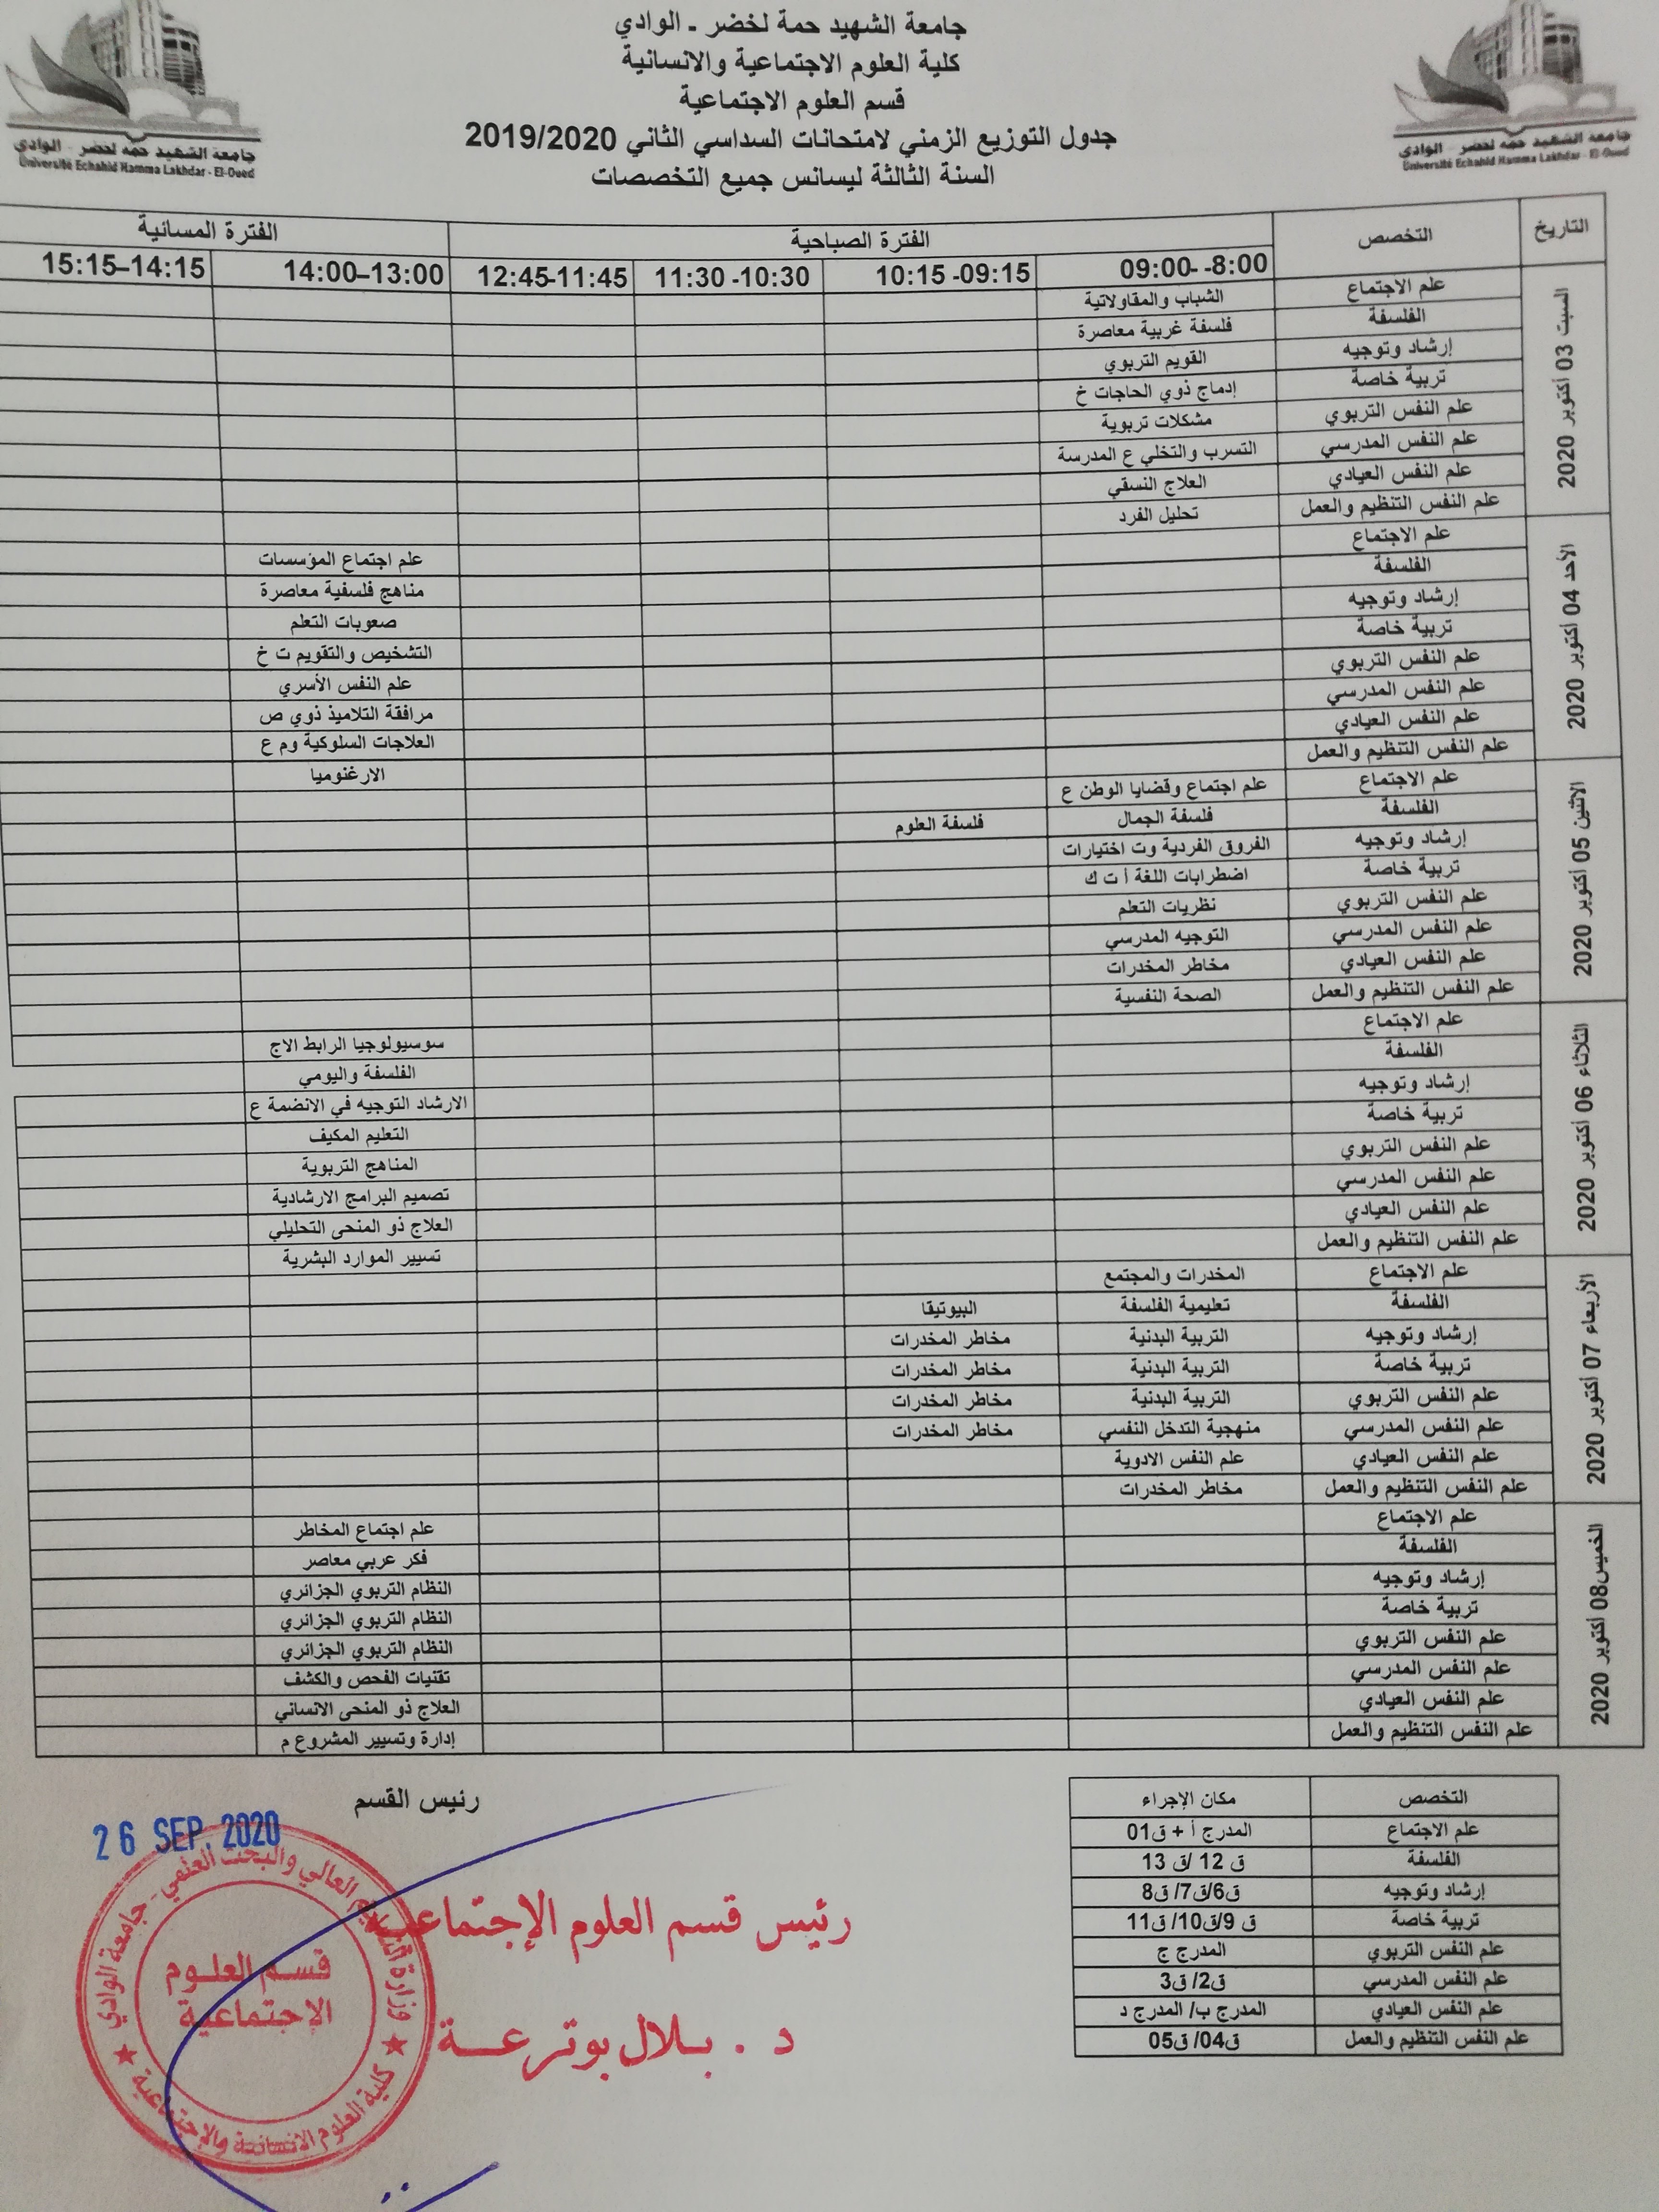 جامعة الشهيد حمة لخضر - الوادي
كلية العلوم الاجتماعية والانسانية
قسم العلوم الاجتماعية
جدول التوزيع الزمني لامتحانات السداسي الثاني 2019/2020
السنة الثالثة ليسانس جميع التخصصات
جامعة الشهيد حمه لخضر - الوادي
Université Echahid Hamma Lakhdar - El-Oued
جامعة الشهيد حمه لخضر - الوادي
Université Echahid Hamma Lakhdar - El-Oued
التاريخ التخصص الفترة الصباحية الفترة المسائية
09:00- -8:00 10:15 -09:15 11:30 -10:30 12:45-11:45 14:00–13:00 15:15–14:15
السبت 03 أكتوبر 2020
علم الاجتماع الشباب والمقاولاتية
الفلسفة فلسفة غربية معاصرة
إرشاد وتوجيه القويم التربوي
تربية خاصة إدماج ذوي الحاجات خ
علم النفس التربوي مشكلات تربوية
علم النفس المدرسي التسرب والتخلي ع المدرسة
علم النفس العيادي العلاج النسقي
علم النفس التنظيم والعمل تحليل الفرد
الأحد 04 أكتوبر 2020
علم الاجتماع علم اجتماع المؤسسات
الفلسفة مناهج فلسفية معاصرة
إرشاد وتوجيه صعوبات التعلم
تربية خاصة التشخيص والتقويم ت خ
علم النفس التربوي علم النفس الأسري
علم النفس المدرسي مرافقة التلاميذ ذوي ص
علم النفس العيادي العلاجات السلوكية وم ع
علم النفس التنظيم والعمل الارغنوميا
الاثنين 05 أكتوبر 2020
علم الاجتماع علم اجتماع وقضايا الوطن ع
الفلسفة فلسفة الجمال فلسفة العلوم
إرشاد وتوجيه الفروق الفردية وت اختيارات
تربية خاصة اضطرابات اللغة أ ت ك
علم النفس التربوي نظريات التعلم
علم النفس المدرسي التوجيه المدرسي
علم النفس العيادي مخاطر المخدرات
علم النفس التنظيم والعمل الصحة النفسية
الثلاثاء 06 أكتوبر 2020
علم الاجتماع سوسيولوجيا الرابط الاج
الفلسفة الفلسفة واليومي
إرشاد وتوجيه الارشاد التوجيه في الانضمة ع
تربية خاصة التعليم المكيف
علم النفس التربوي المناهج التربوية
علم النفس المدرسي تصميم البرامج الارشادية
علم النفس العيادي العلاج ذو المنحى التحليلي
علم النفس التنظيم والعمل تسيير الموارد البشرية
الأربعاء 07 أكتوبر 2020
علم الاجتماع المخدرات والمجتمع
الفلسفة تعليمية الفلسفة البيوتيقا
إرشاد وتوجيه التربية البدنية مخاطر المخدرات
تربية خاصة التربية البدنية مخاطر المخدرات
علم النفس التربوي التربية البدنية مخاطر المخدرات
علم النفس المدرسي منهجية التدخل النفسي مخاطر المخدرات
علم النفس العيادي علم النفس الادوية
علم النفس التنظيم والعمل مخاطر المخدرات
الخميس08 أكتوبر 2020
علم الاجتماع علم اجتماع المخاطر
الفلسفة فكر عربي معاصر
إرشاد وتوجيه النظام التربوي الجزائري
تربية خاصة النظام التربوي الجزائري
علم النفس التربوي النظام التربوي الجزائري
علم النفس المدرسي تقنيات الفحص والكشف
علم النفس العيادي العلاج ذو المنحى الانساني
علم النفس التنظيم والعمل إدارة وتسيير المشروع م
التخصص مكان الإجراء
علم الاجتماع المدرج أ + ق01
الفلسفة ق 12 /ق 13
إرشاد وتوجيه ق6/ق7/ ق8
تربية خاصة ق 9/ق10/ ق11
علم النفس التربوي المدرج ج
علم النفس المدرسي ق2/ ق3
علم النفس العيادي المدرج ب/ المدرج د
علم النفس التنظيم والعمل ق04/ ق05
رئيس القسم
26 SEP. 2020
رئيس قسم العلوم الإجتماعية
د . بـلال بوترعـة
وزارة التعليم العالي والبحث العلمي - جامعة الوادي
كلية العلوم الانسانية والإجتماعية
قسم العلوم
الإجتماعية